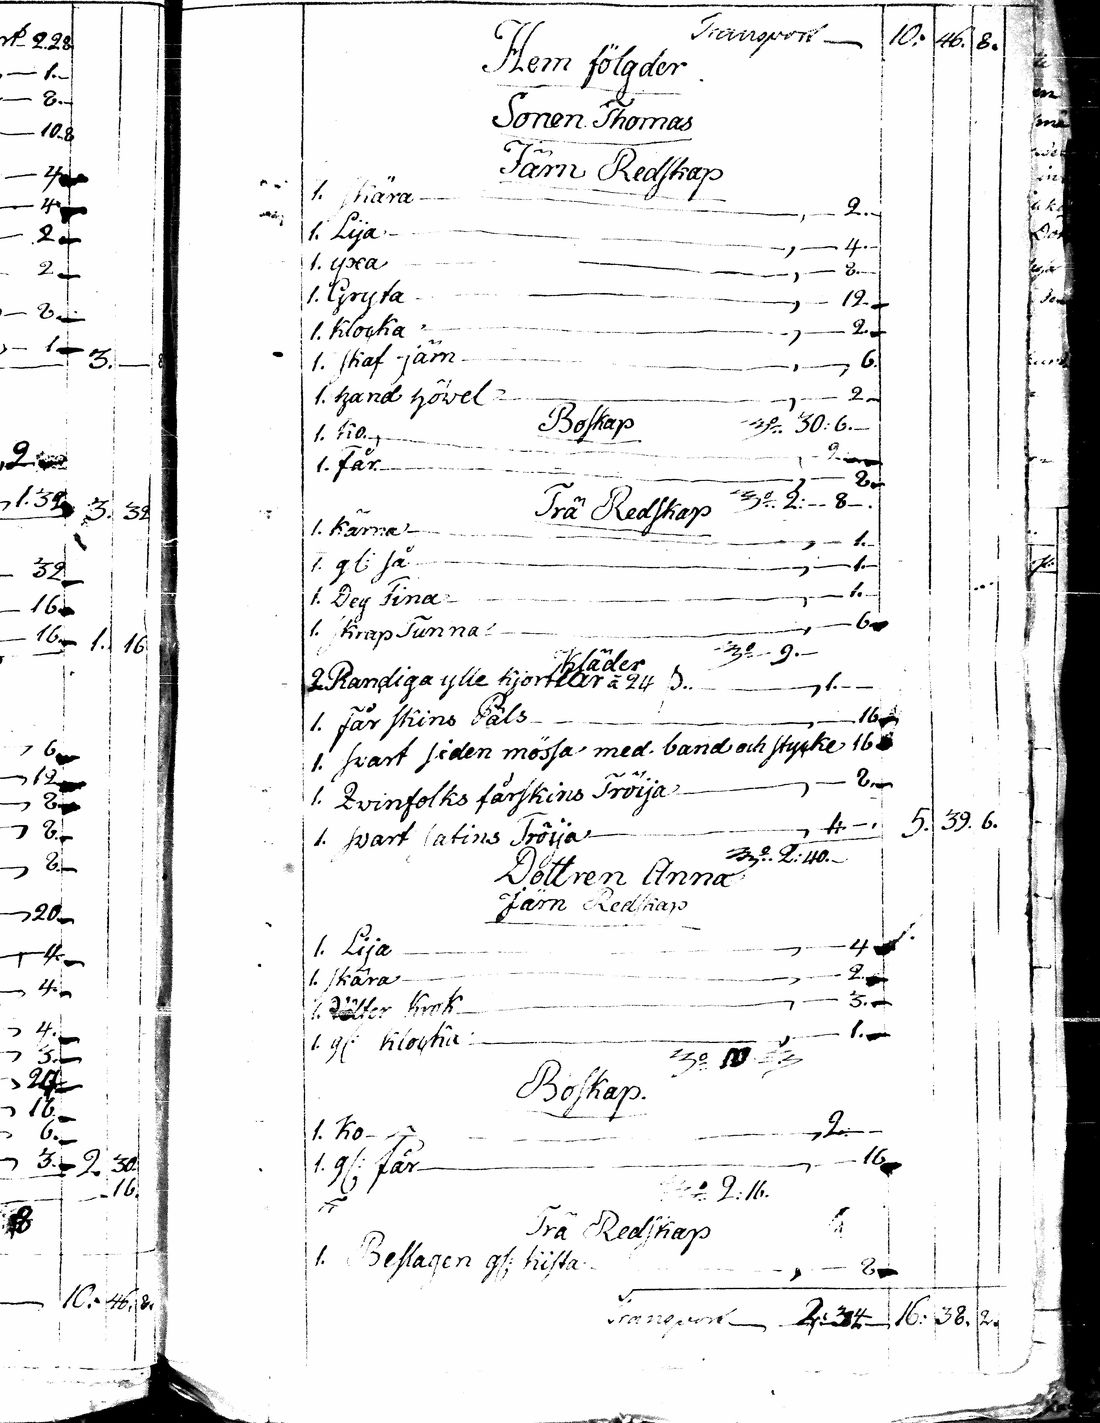 2.28
1.
8.
10.8
4
4.
2.
2.
8.
1. 3.
2
1.32 3. 32
32
16.
16. 1. 16
6.
12
8.
8.
8.
20
4.
4.
4.
3.
16.
6.
3. 2. 30.
16.
8
10. 46. 8.
Transport 10. 46. 8.
Hem fölgder
Sonen Thomas
Järn Redskap
1. skära 2.
1. Lija 4
1. yxa 8.
1. Gryta 12
1. Klocka 2.
1. skaf järn 6.
1. hand höwel 2
Boskap 30: 6.
1. Ko 2
1. får 8.
Trä Redskap 2: 8
1. Kärna 1.
1. gl: så 1.
1. Deg Tina 1.
1. skrap Tunna 6
Kläder 9.
2 Randiga ylle kjortlar a 24 1.
1. får skins Päls 16
1. svart siden mössa med band och stycke 16
1. Qvinfolks fårskins Tröija 8.
1. svart satins Tröija 4 5. 39. 6.
2: 40.
Dottren Anna
Järn Redskap
1. Lija 4
1. skära 2.
1. Krok 3.
1. gl: Klocka 1.
10
Boskap.
1. Ko 2.
1. gl: får 16
2: 16.
Trä Redskap
1. Beslagen gl: kista 8
Transport 2: 34 16: 38. 2.